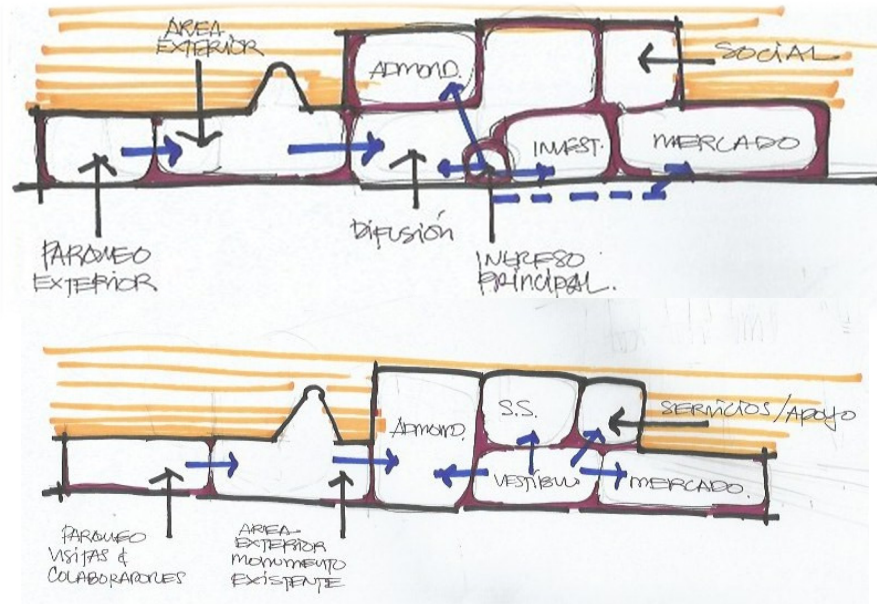 ÁREA
EXTERIOR
ADMOND.
SOCIAL
INVEST.
MERCADO
DIFUSIÓN
PARQUEO
EXTERIOR
INGRESO
PRINCIPAL.
S.S.
SERVICIOS/APOYO
ADMOND.
VESTÍBULO
MERCADO.
PARQUEO
VISITAS &
COLABORADORES
AREA
EXTERIOR
MONUMENTO
EXISTENTE